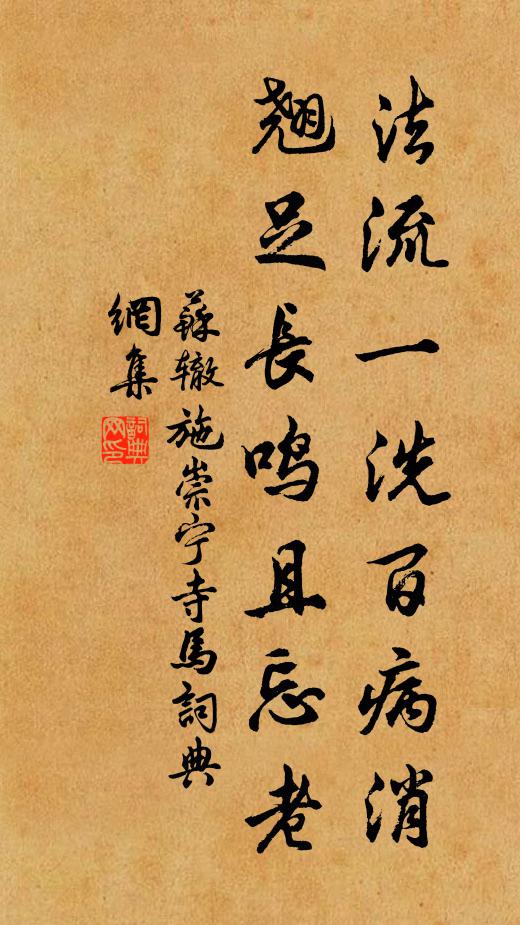 法流一洗百病消
翘足長鳴且忘老
蘇辙施崇宁寺馬詞典
網集
詞典网印